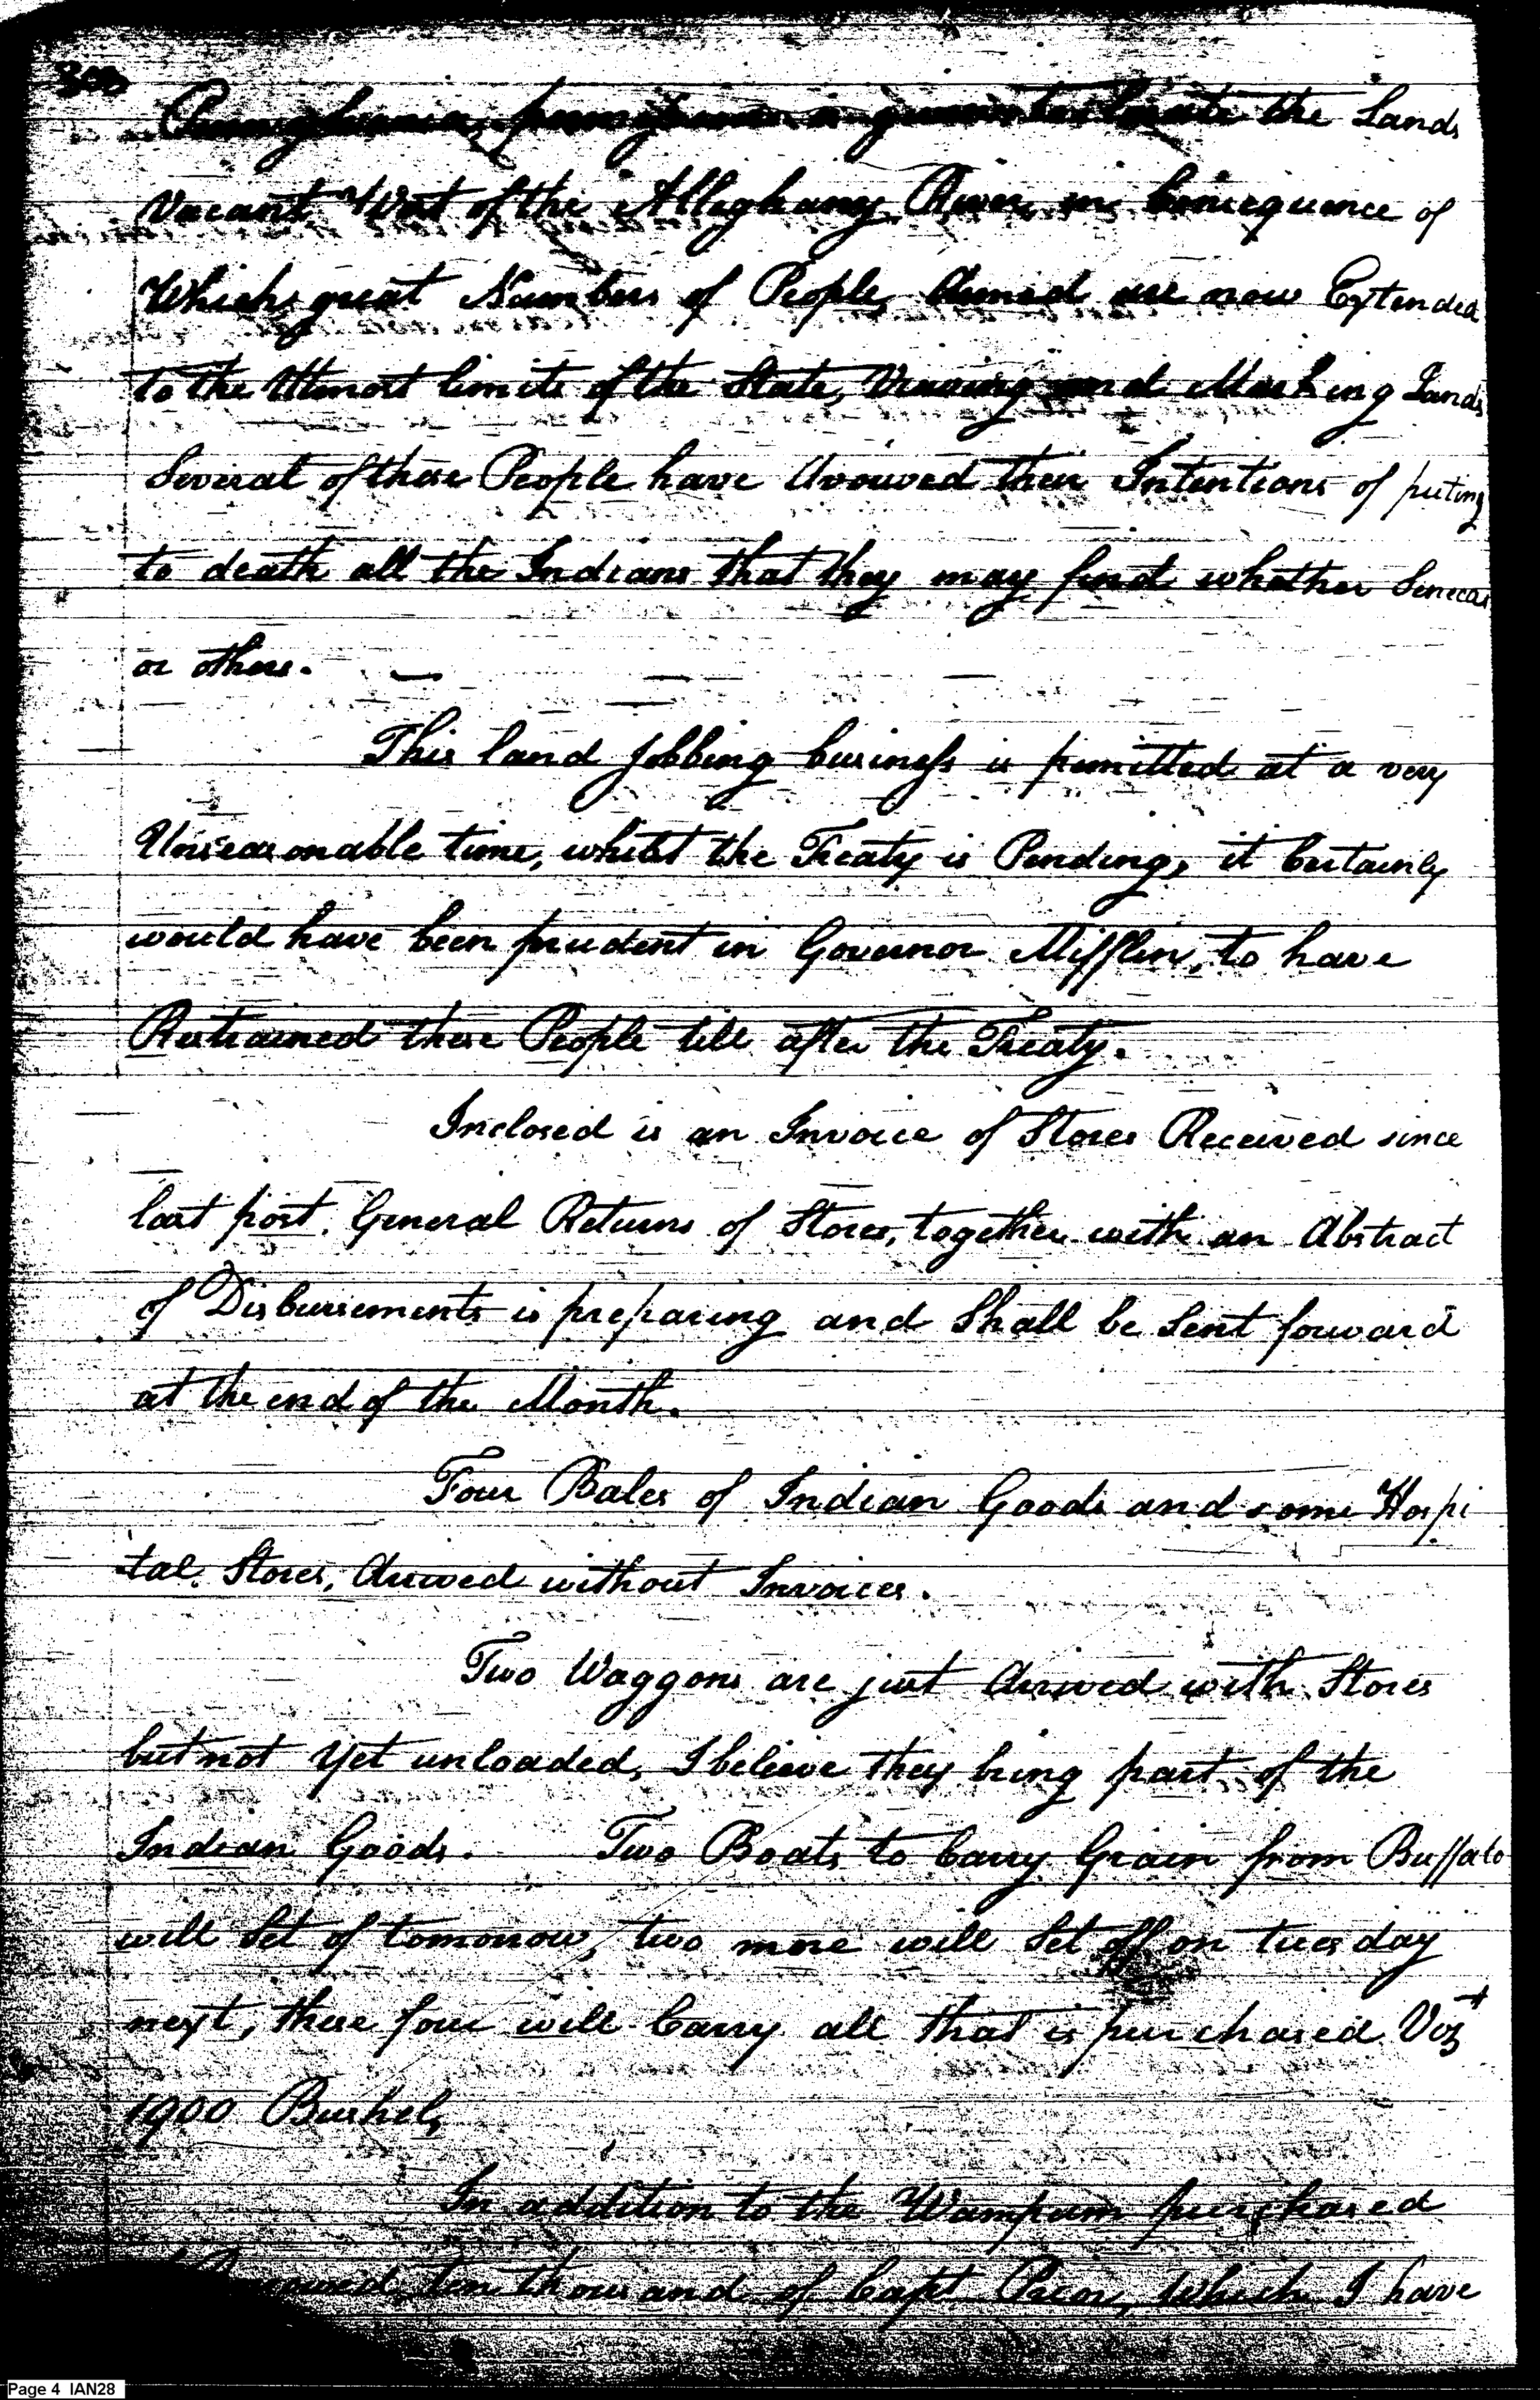 300
Pennsylvania, the Lands
Vacant West of the Alleghany River, in Consequence of
Which, great Numbers of People, Armed are now Extended
to the Utmost limits of the State, Viewing and Marking Lands
Several of these People have Avouved their Intentions of puting
to death all the Indians that they may find whether Senecas
or others. —
This land Jobbing business is permitted at a very
Unseasonable time, whilst the Treaty is Pending, it Certainly
would have been prudent in Governor Mifflin, to have
Restrained these People till after the Treaty.
Inclosed is an Invoice of Stores Received since
last post. General Returns of Stores, together with an Abstract
of Disbursements is preparing and Shall be Sent forward
at the end of the Month.
Four Bales of Indian Goods and some Hospi
tal Stores, Arrived without Invoices.
Two Waggons are just Arrived with Stores
but not Yet unloaded, I believe they bring part of the
Indian Goods. Two Boats to Carry Grain from Buffalo
will Set of tomorrow, two more will Set off on tuesday
next, these four will Carry all that is purchased Vizt
1900 Bushel,
In addition to the Wampum purchased
ten thousand of Capt Prior, which I have
Page 4 IAN28